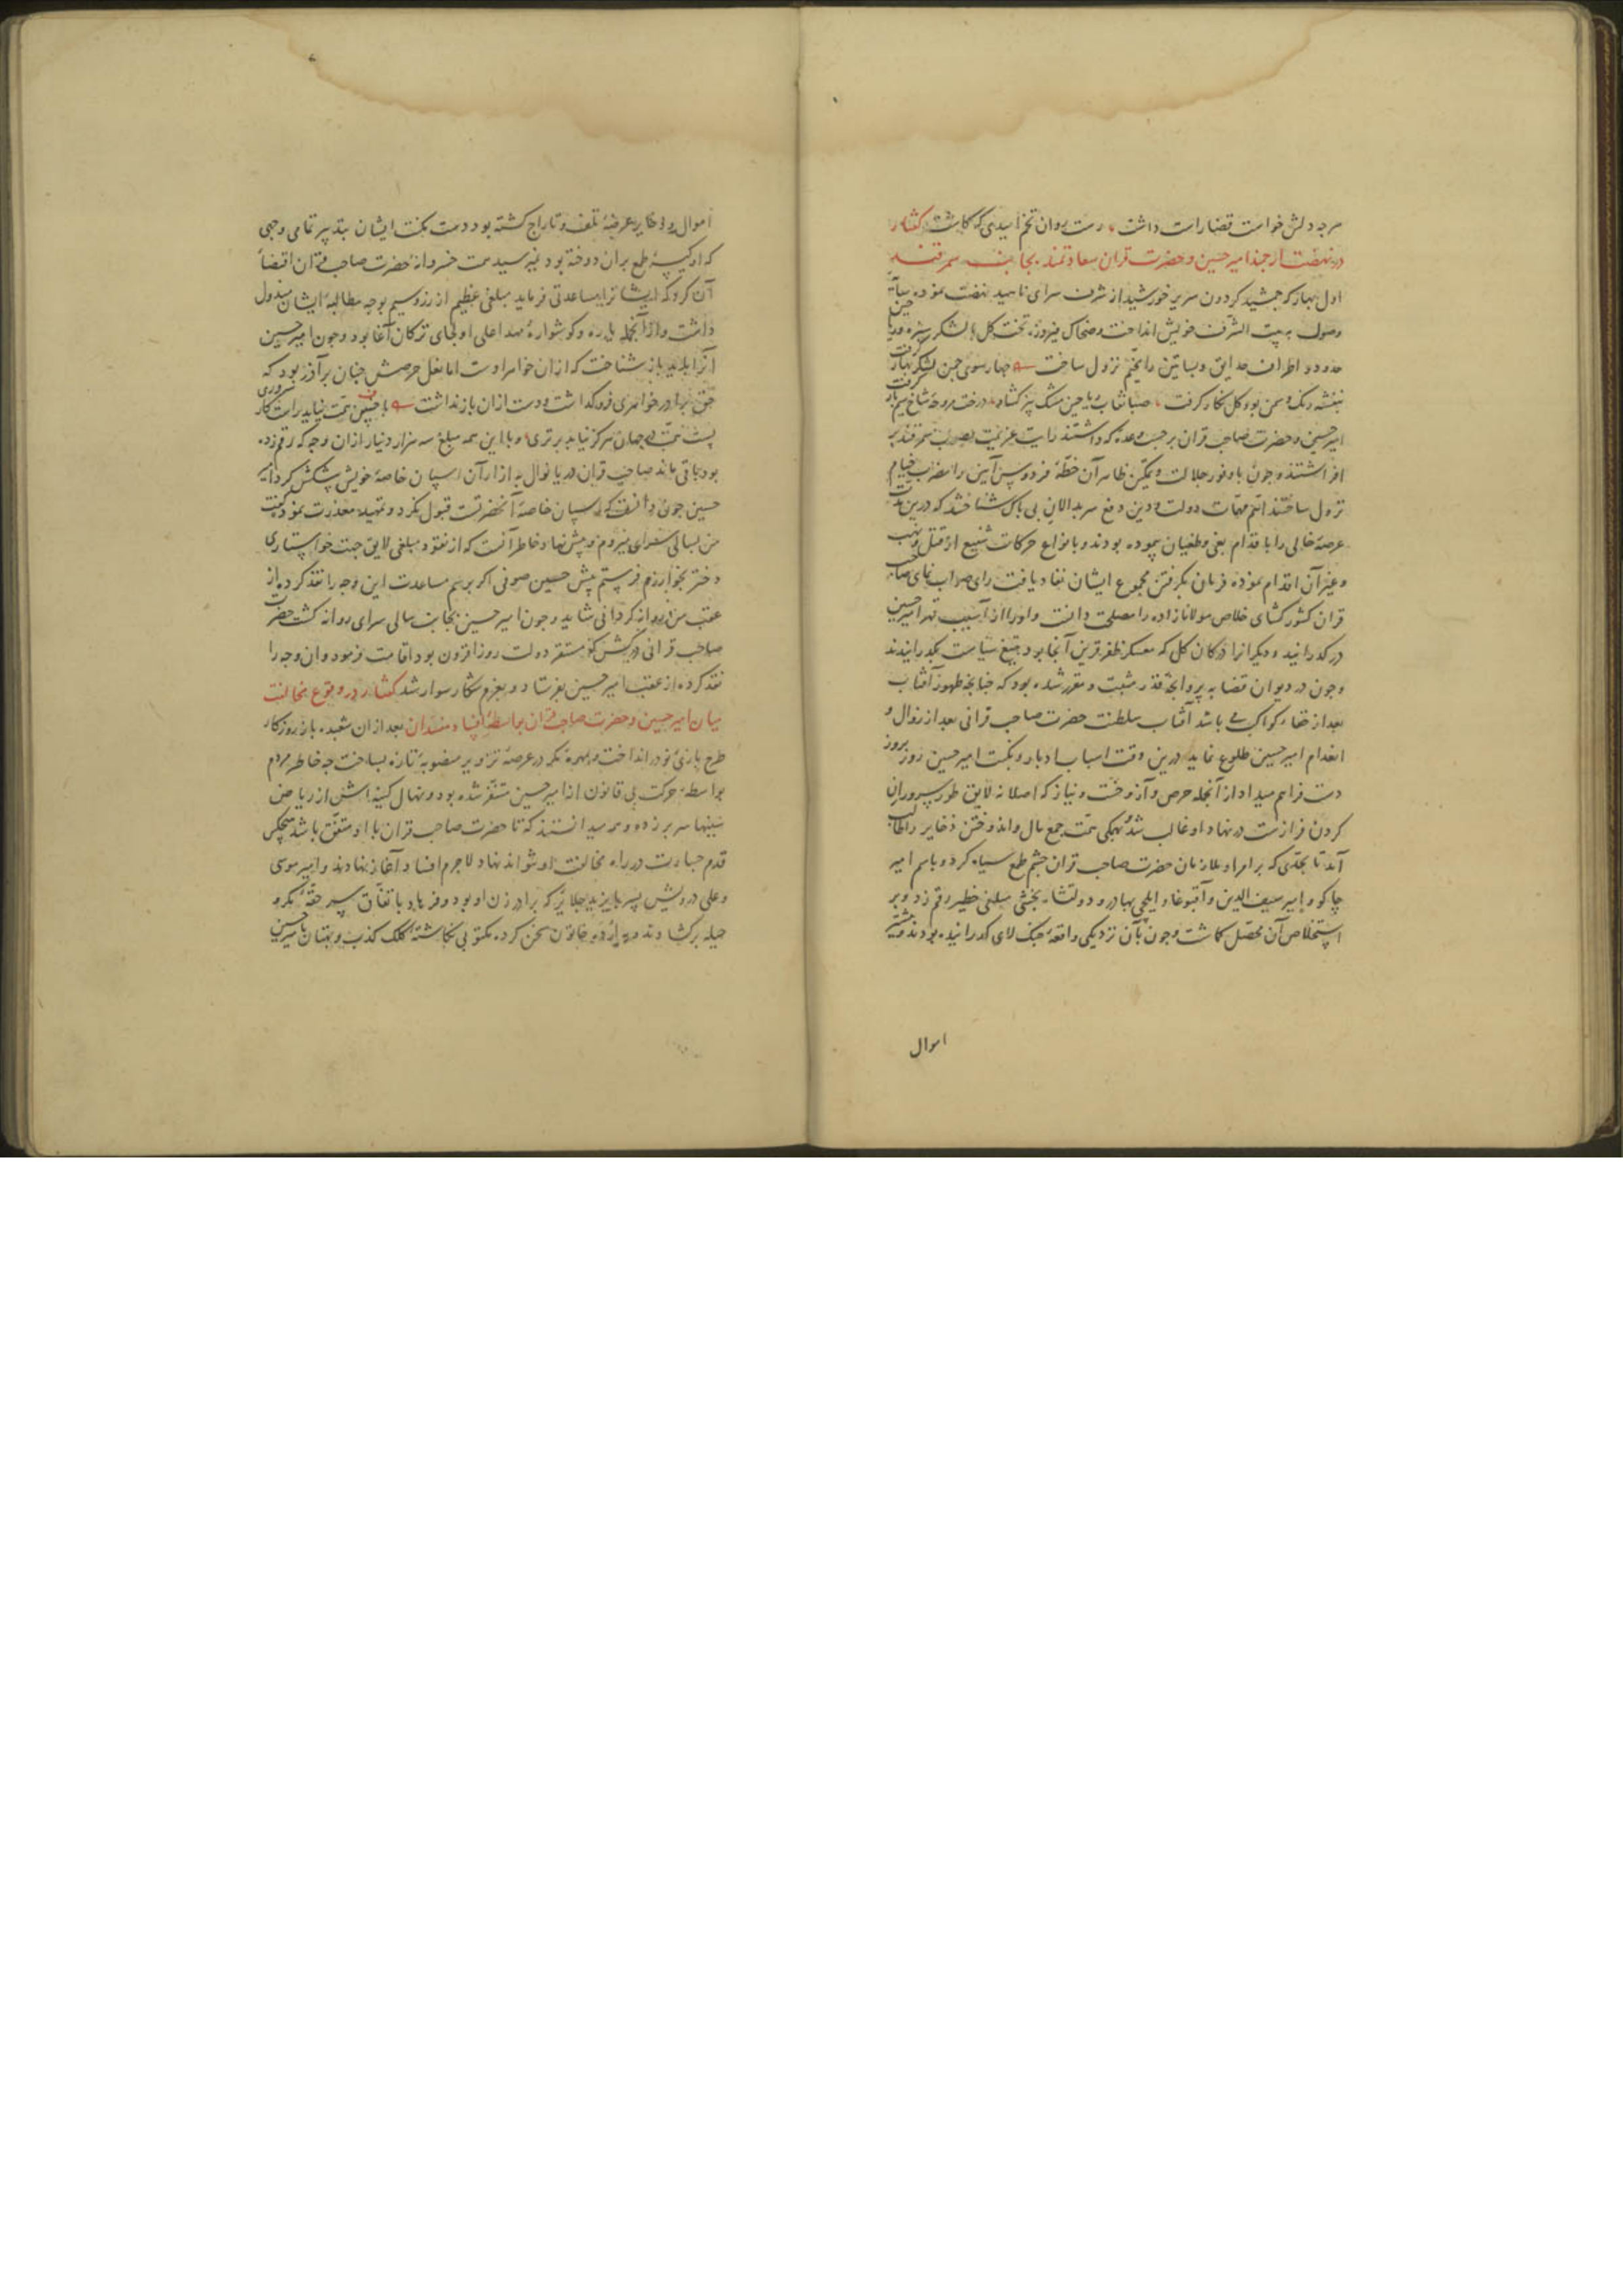 هرچه دلش خواست قضا راست داشت رست روان تخم امیدی که کاشت کفتار
در نهضت ارجمند امیر حسین و حضرت قران سعادتمند بجانب سمرقند
اول بهار که جمشید کردون سریر خورشید از شرف سرای ناهید نهضت نموده سایه
وصول به بیت الشرف خویش انداخت وضحاک فیروز تخت کل با لشکر سبزه و ریاحین
حدود و اطراف حدایق و بساتین را مخیم نزول ساخت چهار سوی چمن لشکر بهار گرفت
بنفشه رنک و سمن بوی کل نکار کرفت صبا نقاب ریاحین مشک بیز کشاد درخت مروحه شاخ سیم بار گرفت
امیر حسین و حضرت صاحب قران بر حسب وعده که داشتند رایت عزیمت بصوب سمرقند بر
افراشتند و چون با وفور جلالت و تمکین ظاهر آن خطه فردوس آیین را مضرب خیام
نزول ساختند اهم مهمات دولت و دین دفع سربدالان بی باک شناختند که درین مدت
عرصه خالی را با قدام بغی و طغیان پیموده بودند و بانواع حرکات شنیع از قتل و نهب
و غیر آن اقدام نموده فرمان بکرفتن مجموع ایشان نفاد یافت رای صواب نمای صاحب
قران کشور کشای خلاص مولانا زاده را مصلحت دانست و او را از آسیب قهر امیر حسین
درکذرانید و دیکرانرا درکان کل که معسکر ظفر قرین آنجا بود بتیغ سیاست بکذرانیدند
و چون در دیوان قضا به پروانجه قدر مثبت و مقرر شده بود که چنانچه ظهور آفتاب
بعد از خفاء کواکب می باشد آفتاب سلطنت حضرت صاحب قرانی بعد از زوال و
انعدام امیر حسین طلوع نماید درین وقت اسباب ادبار و نکبت امیر حسین روز بروز
دست فراهم میداد از آنجمله حرص و آز و خست و نیاز که اصلا نه لایق طور سروران
کردن فرازست در نهاد او غالب شد و بهمکی همت جمع مال و اندوختن ذخایر را طالب
آمد تا بحدی که بر امرا و ملازمان حضرت صاحب قران چشم طمع سیاه کرد و باسم امیر
چاکو و امیر سیف الدین و آقبوغا و ایلچی بهادر و دولتشاه بخشی مبلغی خطیر رقم زد و بر
استخلاص آن محصل کماشت و چون بآن نزدیکی واقعه جنک لای کذرانیده بودند و بیشتر
اموال
اموال و ذخایر عرضه تلف و تاراج کشته بود دست مکنت ایشان بتدبیر تمامی وجهی
که او کیسه طمع بران دوخته بود نمیرسید همت خسروانه حضرت صاحب قران اقتضاء
آن کرد که ایشانرا مساعدتی فرماید مبلغی عظیم از زر و سیم بوجه مطالبه ایشان مبذول
داشت و از آنجمله یاره و کوشواره مهد اعلی اولجای ترکان آغا بود و چون امیر حسین
آنرا بدید باز شناخت که از آن خواهر اوست اما نعل حرصش چنان بر آذر بود که
حق برادر خواهری فرو کذاشت و دست از آن باز نداشت با خسیس همت نیاید راست کار سروری
پست همت در جهان هرکز نیابد برتری و با این همه مبلغ سه هزار دینار از آن وجه که رقم زده
بود باقی ماند صاحب قران دریا نوال به ازار آن اسپان خاصه خویش پیشکش کرد امیر
حسین چون دانست که اسپان خاصه آنحضرتست قبول نکرد و تمهید معذرت نمود و کفت
من بسالی سرای میروم و پیش نهاد خاطر آنست که از نقود مبلغی لایق جهت خواستاری
دختر بخوارزم فرستم پیش حسین صوفی اکر برسم مساعدت این وجه را نقد کرده از
عقب من روانه کردانی شاید و چون امیر حسین بجانب سالی سرای روانه کشت حضرت
صاحب قرانی در کش که مستقر دولت روز افزون بود اقامت فرمود و ان وجه را
نقد کرده از عقب امیر حسین بفرستاد و بعزم شکار سوار شد کفتار در وقوع مخالفت
میان امیر حسین و حضرت صاحب قران بواسطه افساد مفسدان بعد از ان شعبده باز روزکار
طرح بازی نو در انداخت و مهره مکر در عرصه تزویر منصوبه تازه بساخت چه خاطر مردم
بواسطه حرکت بی قانون از امیر حسین متنفر شده بود و نهال کینه اش از ریاض
سینها سر بر زده و همه میدانستند که تا حضرت صاحب قران با او متفق باشد هیچکس
قدم جسارت در راه مخالفت او نتواند نهاد لاجرم افساد آغاز نهادند و امیر موسی
و علی درویش پسر بایزید جلایر که برادر زن او بود و فرهاد باتفاق سر حقه مکر و
حیله برکشادند و به اردوی خاتون سخن کرده مکتوبی نکاشته کلک کذب و بهتان با امیر حسین